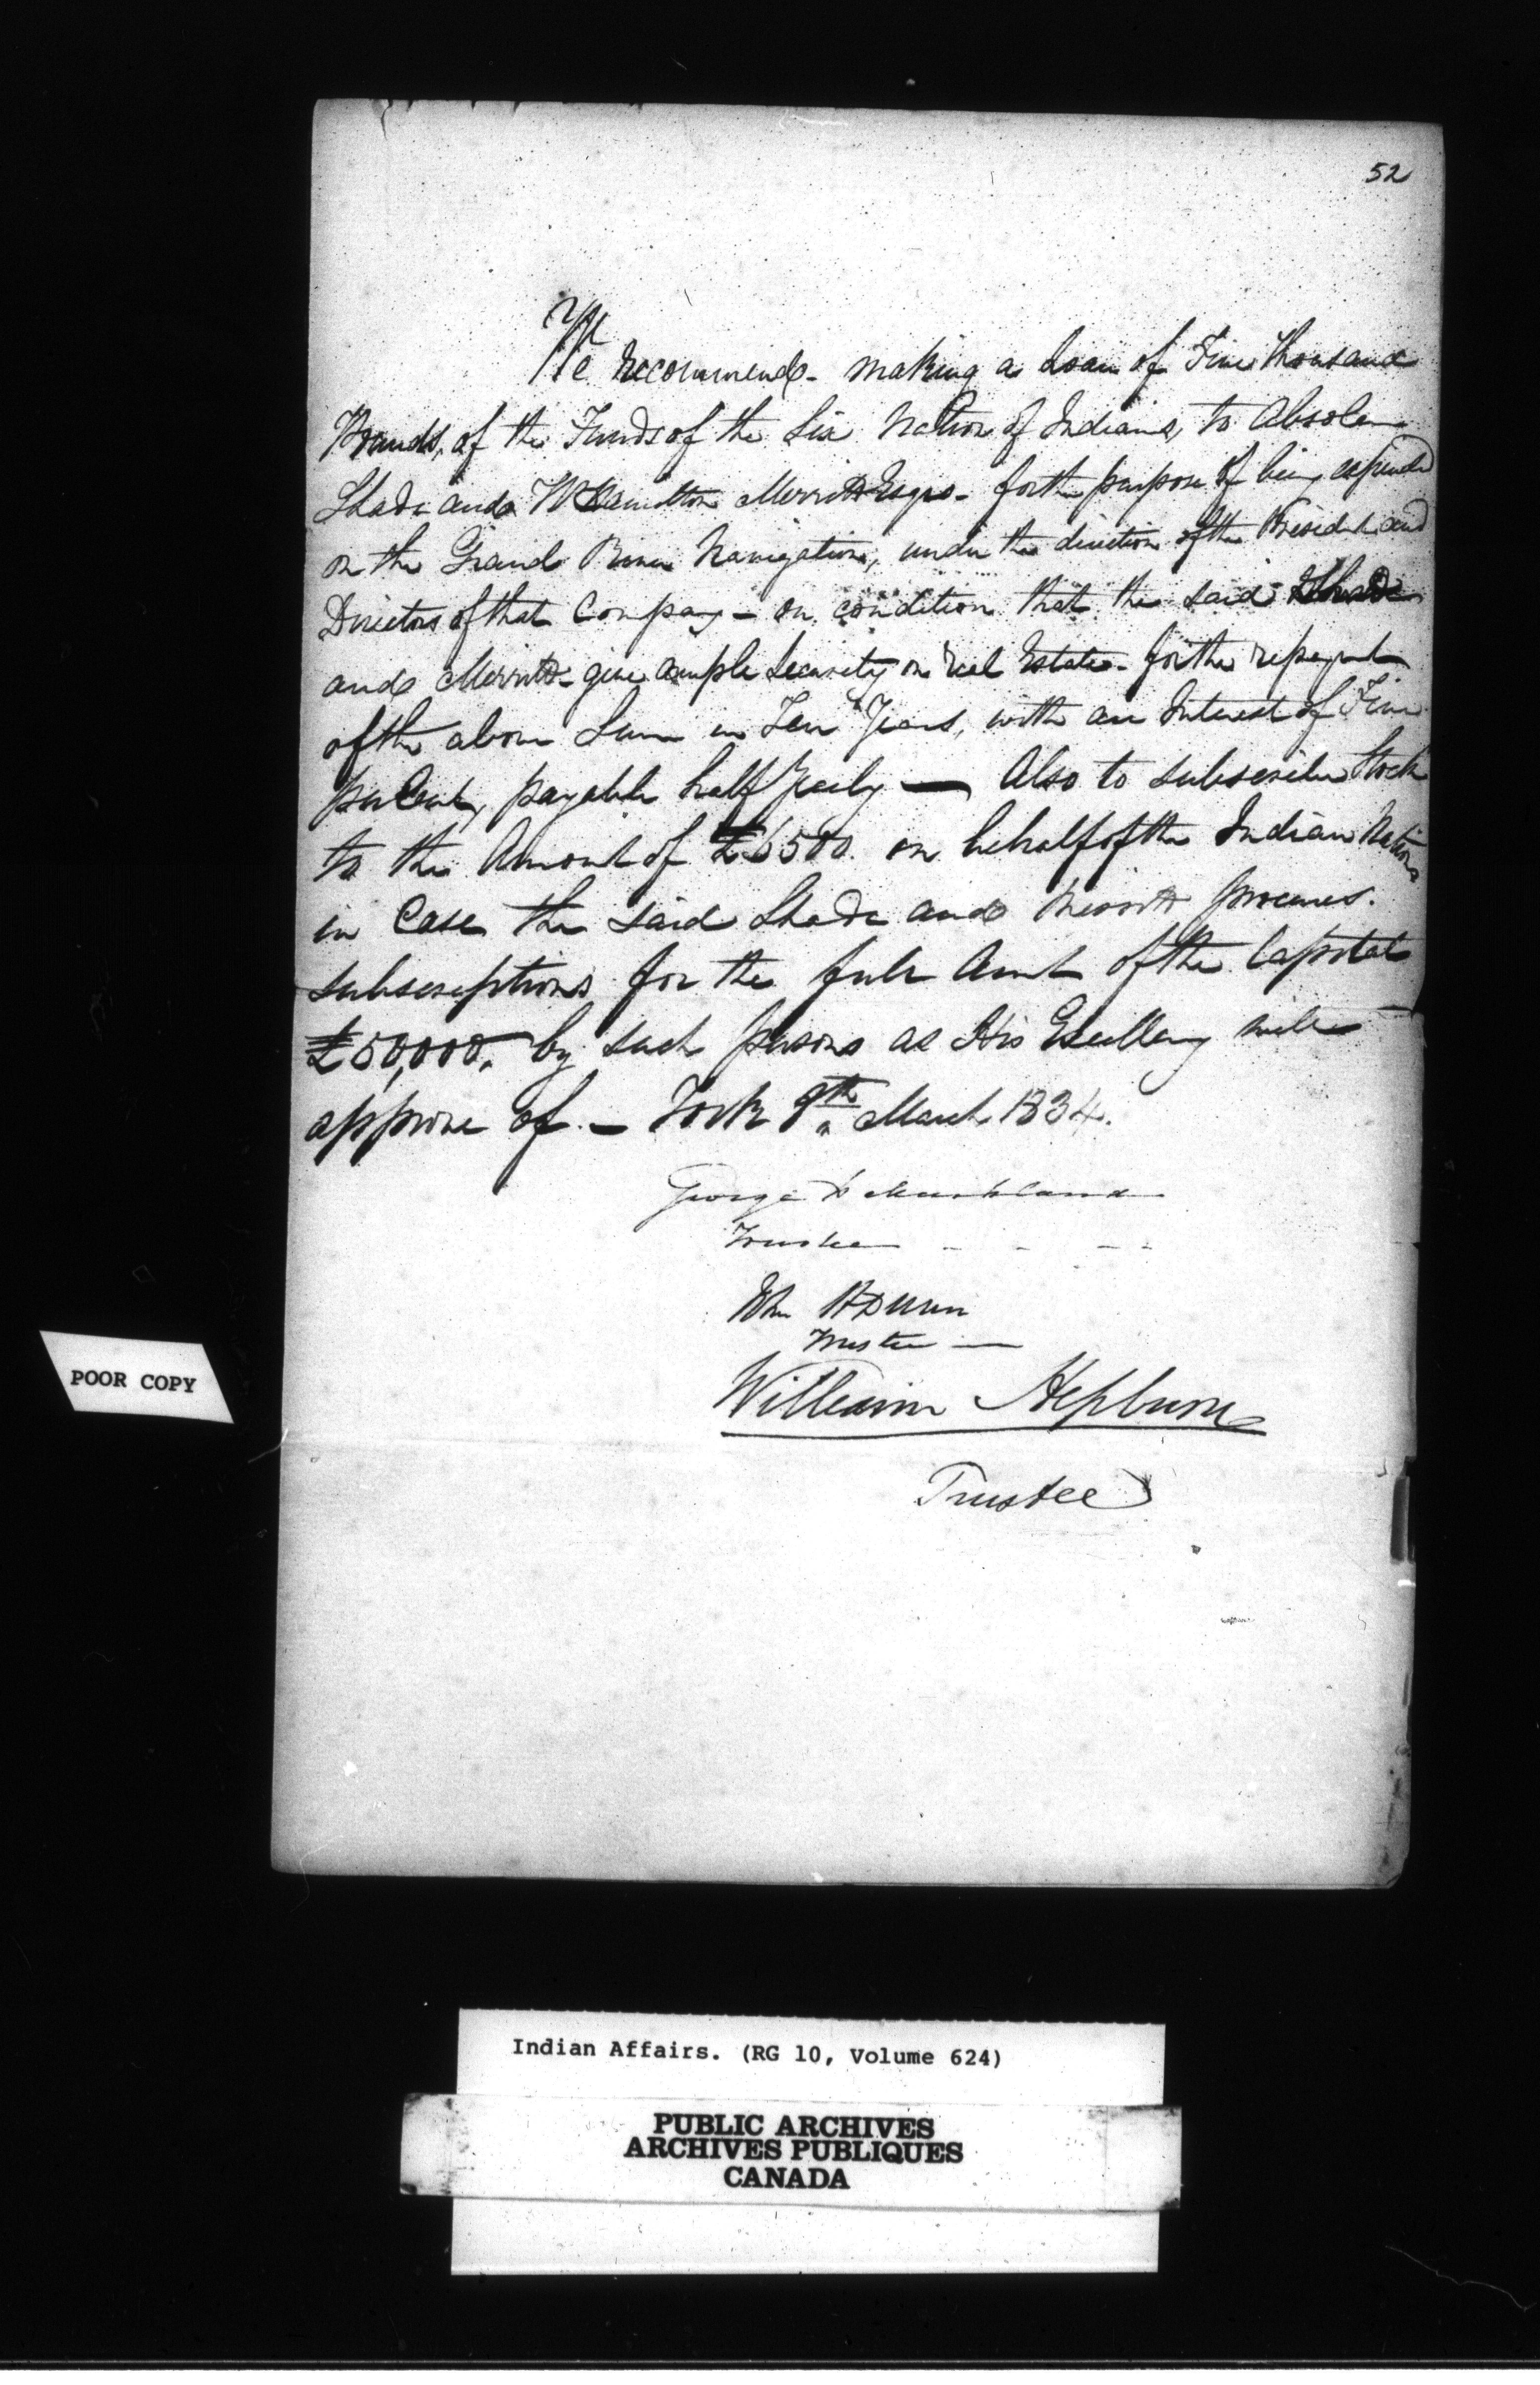 52
We recommend - making a Loan of Five thousand
Pounds, of the Funds of the Six Nation of Indians, to Absolem
Shade and W Hamilton Merritt Esqrs - for the purpose of being expended
on the Grand River Navigation, under the direction of the President and
Directors of that Company - on condition that the said Shade
and Merritt - give ample Security on real Estate - for the repayment
of the above Sum in Ten Years, with an Interest of Five
per Cent, payable half Yearly — Also to subscribe Stock
to the Amount of £6500. on behalf of the Indian Nations
in Case the said Shade and Merritt procures.
subscriptions for the full Amt of the Capital
£50,000, by such persons as His Excellency will
approve of. — York 9th March 1834.
George Markland
Trustee - - - -
John H Dunn
Trustee —
William Hepburne
Trustee
POOR COPY
Indian Affairs. (RG 10, Volume 624)
PUBLIC ARCHIVES
ARCHIVES PUBLIQUES
CANADA